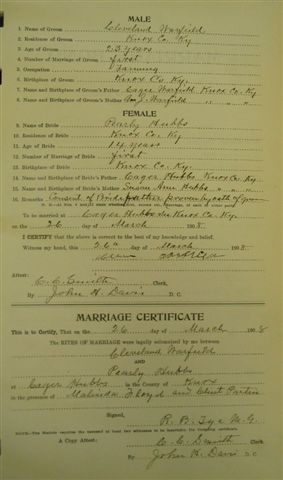 MALE
1. Name of Groom Cleveland Warfield
2. Residence of Groom Knox Co. Ky
3. Age of Groom 23 years
4. Number of Marriage of Groom first
5. Occupation Farming
6. Birthplace of Groom Knox Co. Ky.
7. Name and Birthplace of Groom's Father Eager Warfield Knox Co. Ky
8. Name and Birthplace of Groom's Mother J. Warfield " " "
FEMALE
9. Name of Bride Pearly Hubbs
10. Residence of Bride Knox Co. Ky
11. Age of Bride 14 years
12. Number of Marriage of Bride first
13. Birthplace of Bride Knox Co. Ky.
14. Name and Birthplace of Bride's Father Eager Hubbs Knox Co. Ky
15. Name and Birthplace of Bride's Mother Susan Ann Hubbs " " "
16. Remarks Consent of Brides father proven by oath of groom
To be married at Eager Hubbs in Knox Co. Ky
on the 26 day of March 1908
I CERTIFY that the above is correct to the best of my knowledge and belief.
Witness my hand, this 26th day of March 1908
Attest:
C. C. Smith Clerk,
By John H. Davis D. C
MARRIAGE CERTIFICATE
This is to Certify, That on the 26 day of March 1908
The RITES OF MARRIAGE were legally solemnized by me between
Cleveland Warfield
AND
Pearly Hubbs
at Eager Hubbs in the County of Knox
in the presence of Malinda Floyd and Clint Partin
Signed, R. B. Lye M. G.
A Copy Attest: C. C. Smith Clerk
By John H. Davis D C